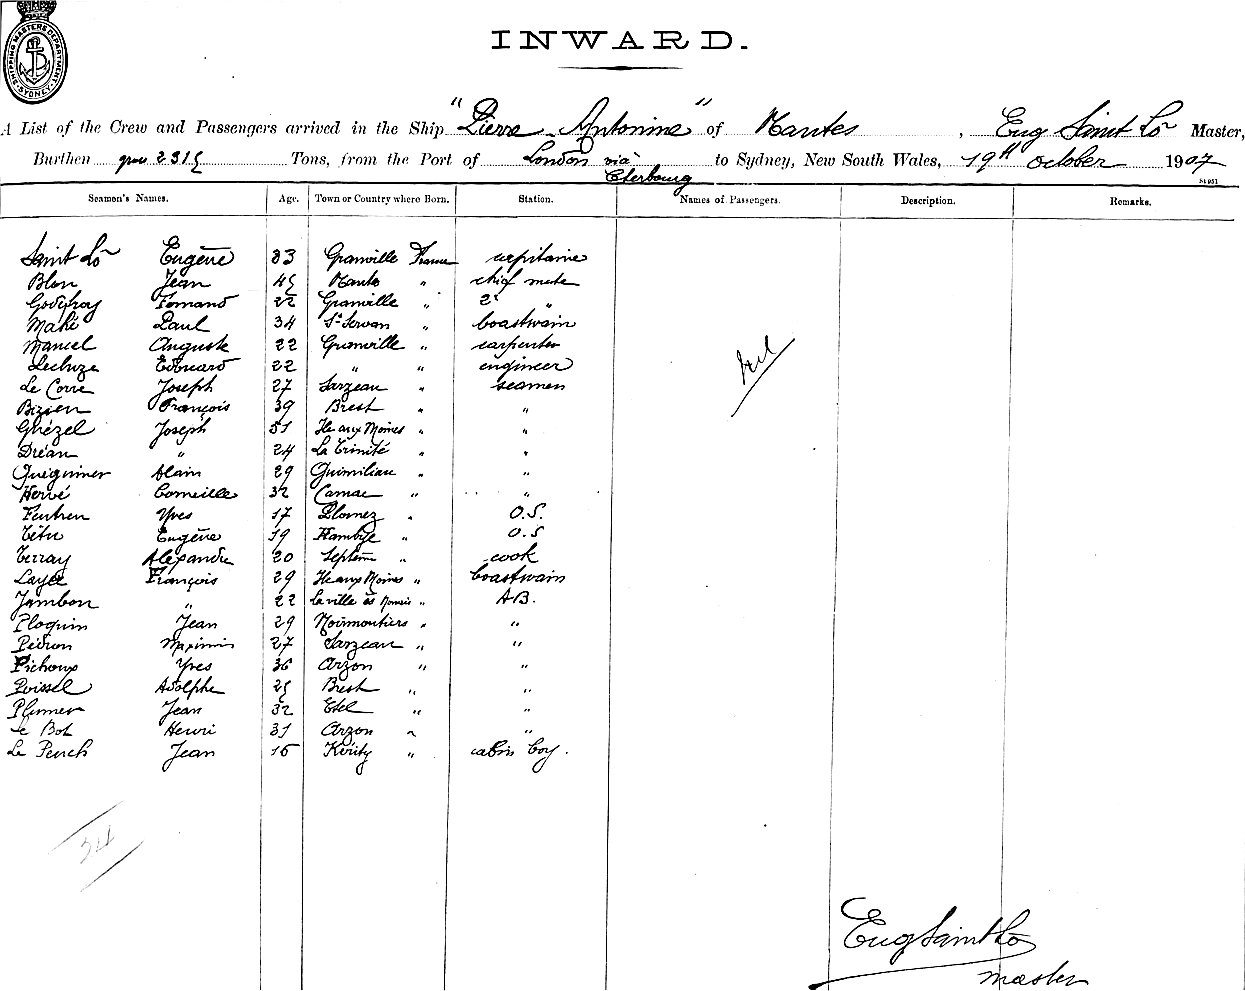 SHIPPING MASTERS DEPARTMENT SYDNEY
INWARD.
A List of the Crew and Passengers arrived in the Ship "Pierre Antonine" of Nantes, Eug Saint Lô Master,
Burthen 2315 Tons, from the Port of London via to Sydney, New South Wales, 19th October 1907
Cherbourg
Seamen's Names. Age. Town or Country where Born. Station. Names of Passengers. Description. Remarks.
Saint Lô Eugène 33 Granville France capitaine
Blon Jean 45 Nantes " chief mate
Godefroy Fernand 22 Granville " 2d "
Mahé Paul 34 St Servan " boastwain
Mancel Auguste 22 Granville " carpenter
Lecluze Edouard 22 " " engineer
Le Corre Joseph 27 Sarzeau " seamen
Bizien François 39 Brest " "
Ghézel Joseph 51 Ile aux Moines " "
Dréan " 24 La Trinité " "
Guéguiner Alain 29 Guimiliau " "
Hervé Corneille 32 Carnac " "
Feutren Yves 17 " O.S.
Têtu Eugène 19 Hambye " O.S
Terray Alexandre 20 Septème " cook
Layec François 29 Ile aux Moines " boastwain
Jambon " 22 La ville ès Nonais " A.B.
Ploquin Jean 29 Noirmoutiers " "
Pédron Maximin 27 Sarzeau " "
Pichoux Yves 36 Arzon " "
Poissel Adolphe 25 Brest " "
Plunner Jean 32 Etel " "
Le Bot Henri 31 Arzon " "
Le Peuch Jean 16 Kérity " cabin boy.
Nil
24
Eug Saint Lô
master